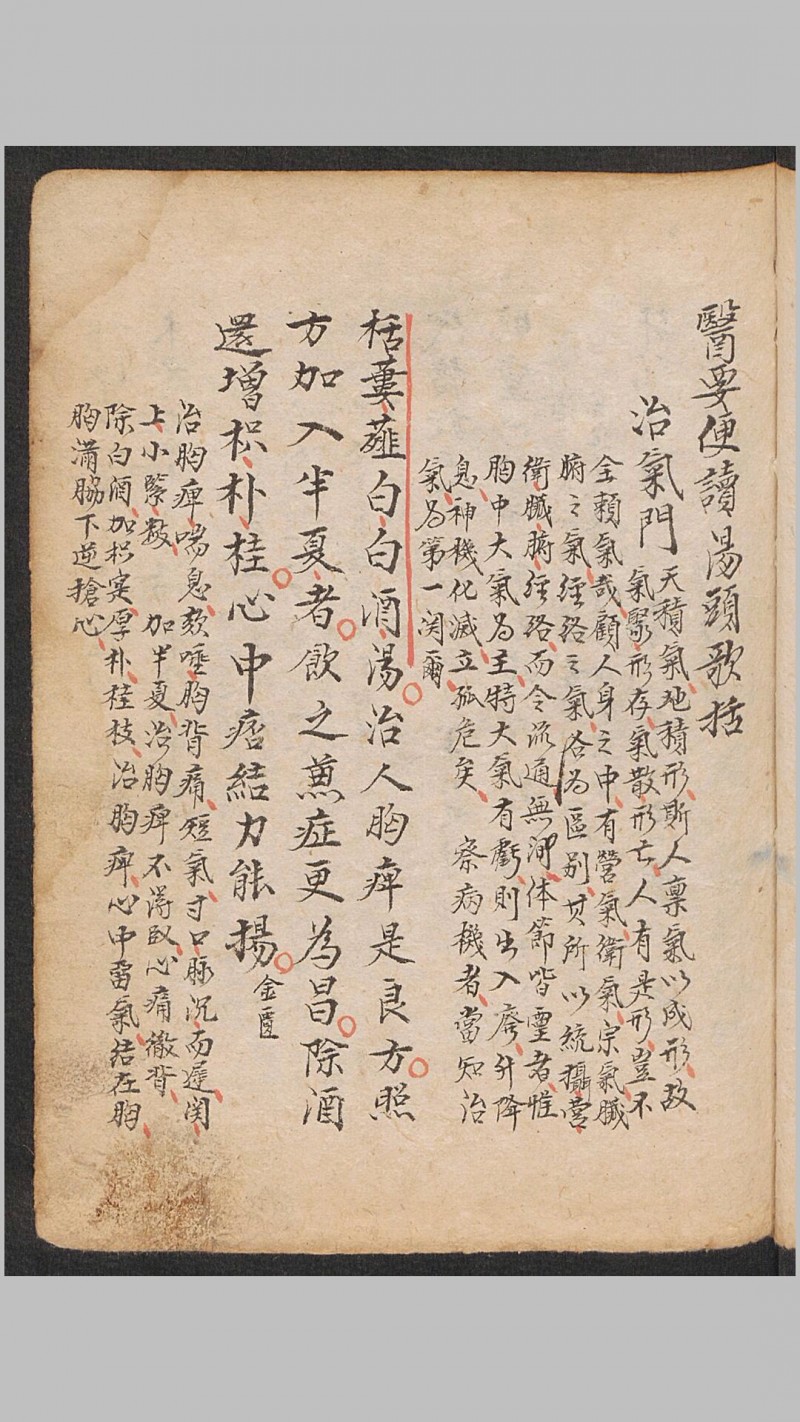 醫要便讀湯頭歌括
治氣門
天積氣、地積形、斯人稟氣以成形、故
氣聚形存、氣散形亡、人有是形、豈不
全賴氣哉、顧人身之中、有營氣、衛氣、宗氣、臟
腑之氣、經絡之氣、各為區别、其所以統攝營
衛、臟腑、經絡、而令流通無間、体節皆靈者、惟
胸中大氣為主、特大氣有虧、則出入廢、升降
息、神機化滅、立孤危矣、察病機者、當知治
氣為第一関爾
栝蔞、薤白、白酒湯。治人胸痺是良方。照
方加入半夏者。飲之蒸症更為昌。除酒
還增枳、朴、桂。心中痞結力能揚。金匱
治胸痺、喘息、欬唾、胸背痛、短氣、寸口脉沉而遲、関
上小緊、数、加半夏、治胸痺不得臥、心痛徹背、
除白酒、加枳实、厚朴、桂枝、治胸痺、心中畱氣、结在胸、
胸滿、脇下逆搶心、